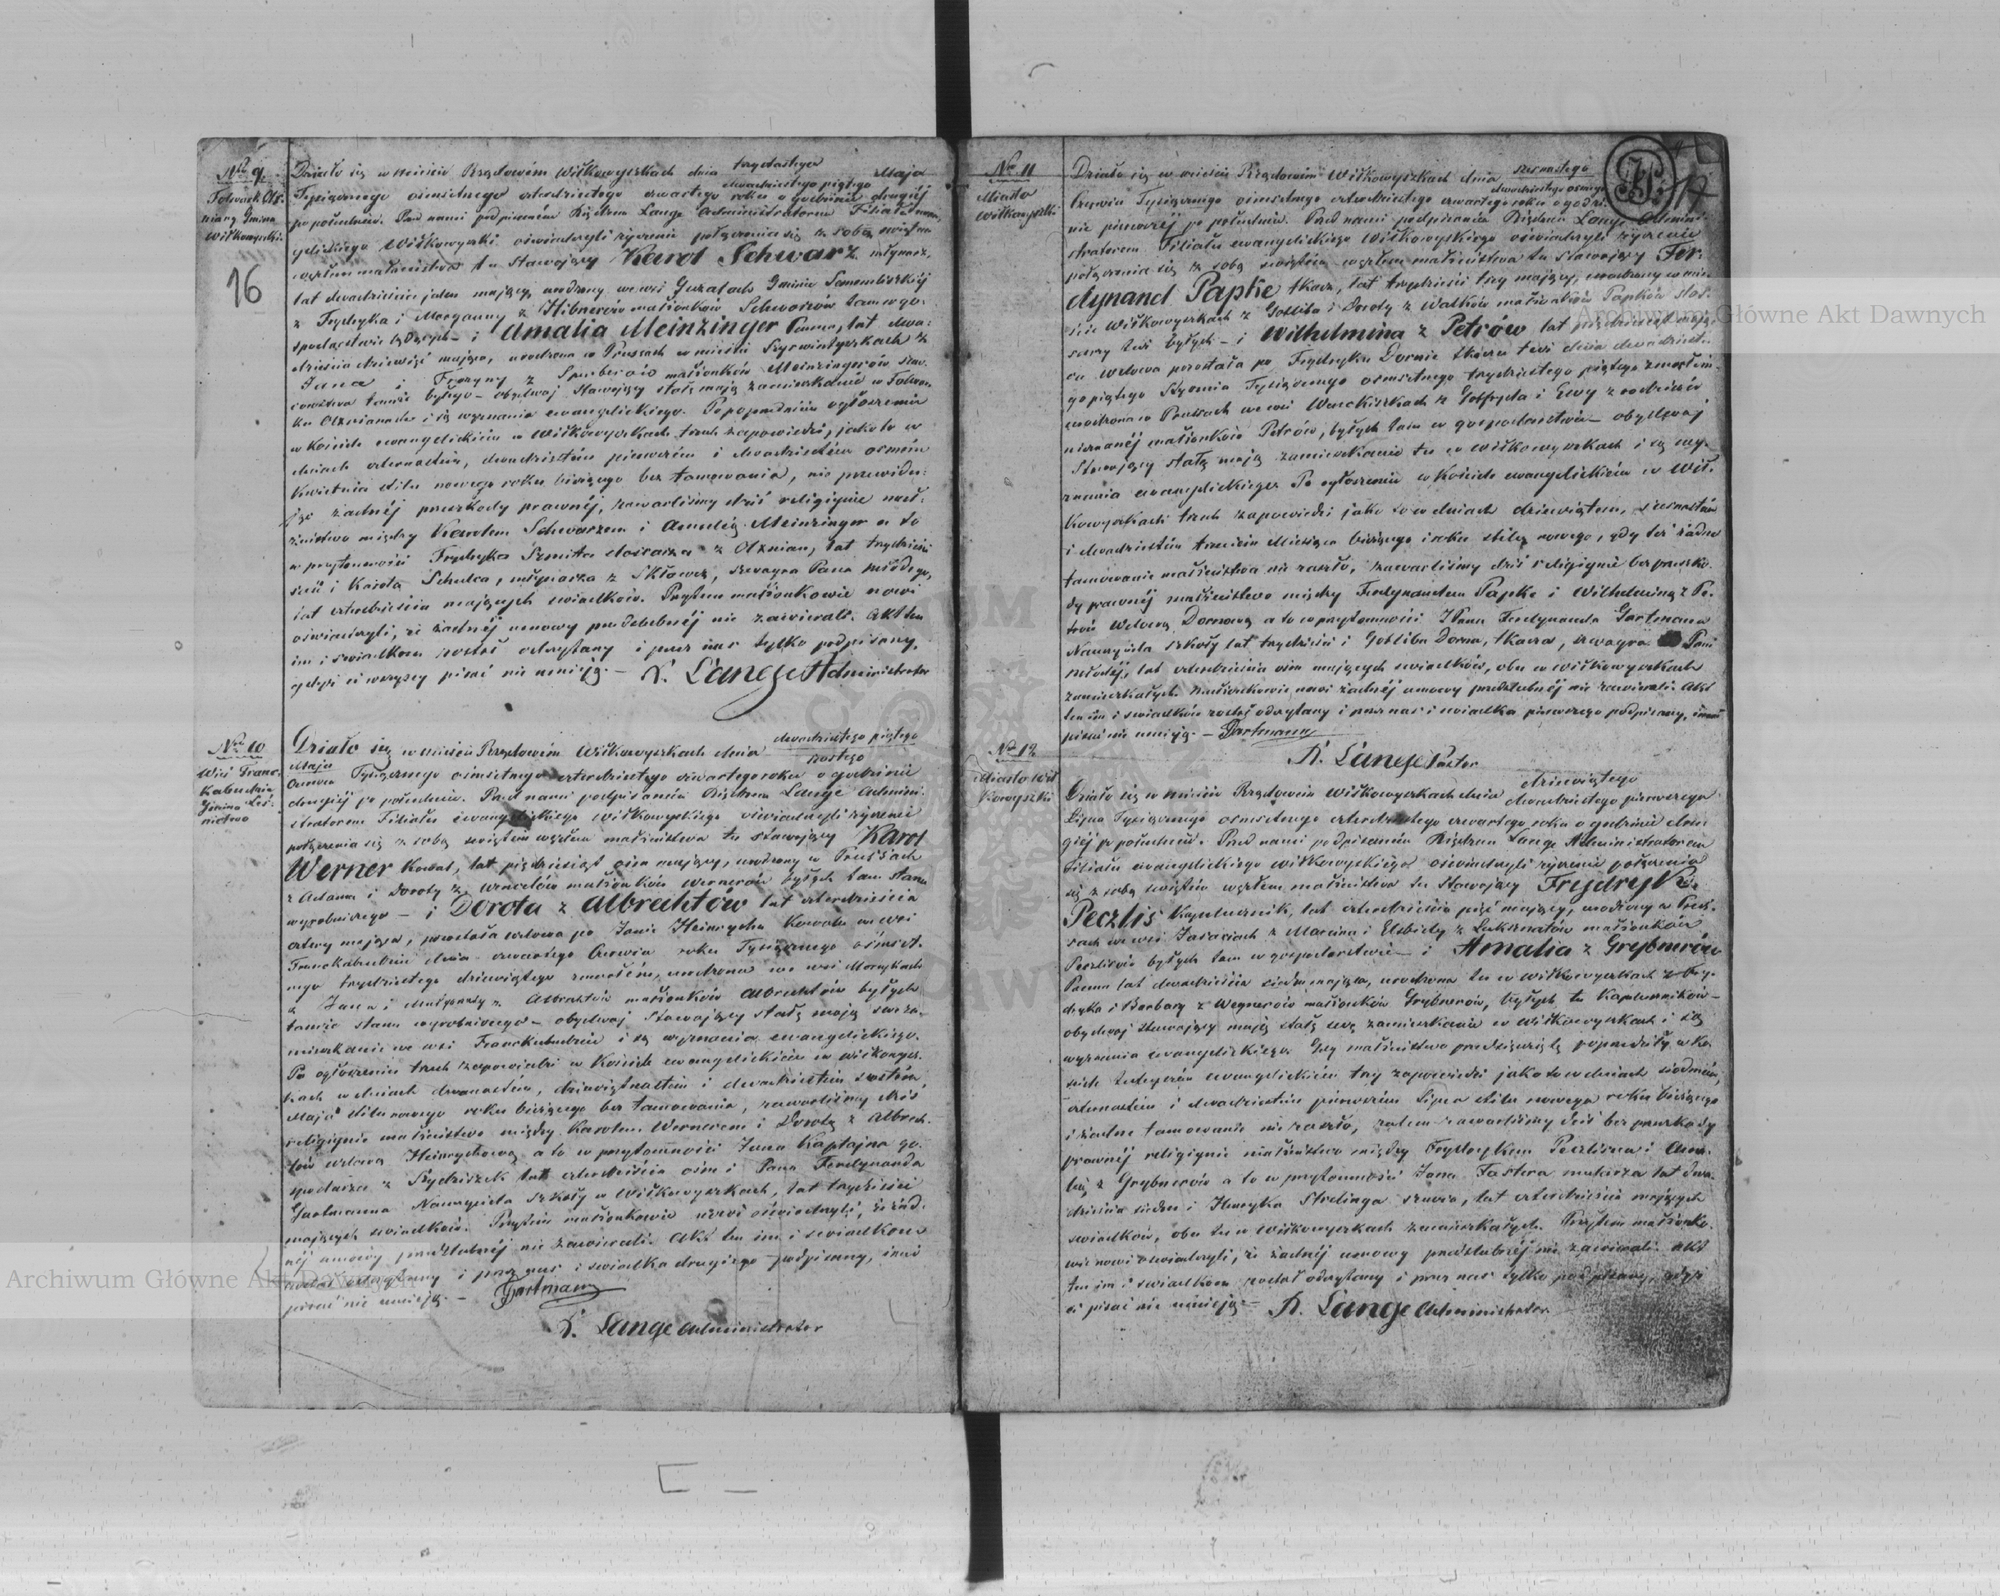 No 9.
Folwark Ożniany Gmina
Wiłkowyszki.
16
Działo się w mieście Rządowém Wiłkowyszkach dnia trzynastego Maja
dwudziestego piątego
Tysiącznego ośmsetnego czterdziestego czwartego roku o godzinie drugiéj
po południu. Przed nami podpisanem Lange Administratorem Filiału Ewan-
gelickiego Wiłkowyszki oświadczyli życzenie połączenia się z sobą świętym
węzłem małżeństwa tu stawający Karol Schwarz młynarz,
lat dwadzieścia jeden mający, urodzony we wsi Guzatach Gminie
z Frydryka i Maryanny z Hibnerów małżonków Schwarzów tam w go-
spodarstwie będących – i Amalia Meinzinger Panna, lat dwa-
dzieścia dziewięć mająca, urodzona w Prusach w mieście Szyrwintyszkach z
Jana i z małżonków Meinzingerów
tamże byłego – obydwoj stawający stałe mają zamieszkanie w Folwar-
ku Ożnianach i są wyznania ewangelickiego. Po poprzedniém ogłoszeniu
w Kościele ewangelickim w Wiłkowyszkach trzech zapowiedzi, jako to w
dniach czternastém, dwudziestém pierwszém i dwudziestém ósmém
Kwietnia stilu nowego roku bieżącego bez tamowania, nie przewidu-
jąc żadnéj przeszkody prawnéj, zawarliśmy dziś religijnie mał-
żeństwo między Karolem Schwarzem i Amalią Meinzinger a to
w przytomności Frydryka Szmita z Ożnian, lat trzydzieści
sześć i Karola Schulca, młynarza z szwagra Pana młodego,
lat czterdzieścia mających świadków. Przytem małżonkowie nowi
oświadczyli, że żadnéj umowy przedślubnéj nie zawierali. Akt ten
im i świadkom został odczytany i przez nas tylko podpisany,
gdyż ci wszyscy pisać nie umieją. – Lange Administrator
No 10
Wieś Franc-
kabudzie
Gmina Leś-
nictwo
Działo się w mieście Rządowém Wiłkowyszkach dnia dwudziestego piątego
Maja szóstego
Czerwca Tysiącznego ośmsetnego czterdziestego czwartego roku o godzinie
drugiéj po południu. Przed nami podpisaném Lange Admini-
stratorem Filiału Ewangelickiego Wiłkowyskiego oświadczyli życzenie
połączenia się z sobą świętém węzłem małżeństwa tu stawający Karol
Werner Kowal, lat pięćdziesiąt ośm mający, urodzony w Prussach
z Adama i Doroty z Wenclów małżonków Wernerów byłych tam stanu
wyrobniczego – i Dorota z Albrechtów lat czterdzieścia
cztery mająca, pozostała wdowa po Janie Heinrychu Kowalu we wsi
Franckabudzie dnia czwartego Czerwca roku Tysiącznego ośmset-
nego trzydziestego dziewiątego zmarłém, urodzona we wsi
z Jana i Małgorzaty z Albrechtów małżonków Albrechtów byłych
tamże stanu wyrobniczego – obydwoj stawający stałe mają swe za-
mieszkanie we wsi Franckabudzie i są wyznania ewangelickiego.
Po ogłoszeniu trzech zapowiedzi w Kościele ewangelickiém w Wiłkowysz-
kach w dniach dwunastém, dziewiętnastém i dwudziestém szóstém,
Maja stilu nowego roku bieżącego bez tamowania, zawarliśmy dziś
religijnie małżeństwo między Karolem Wernerem i Dorotą z Albrech-
tów wdową Heinrychową a to w przytomności Jana Kaptajna go-
spodarza z lat czterdzieścia ośm i Pana Ferdynanda
Gartmanna Nauczyciela szkoły w Wiłkowyszkach, lat trzydzieści
mających świadków. Przytém małżonkowie nowi oświadczyli, że żad-
néj umowy przedślubnéj nie zawierali. Akt ten im i świadkom
został odczytany i przez nas i świadka drugiego podpisany, inni
pisać nie umieją. – Gartmann
Lange Administrator
17
No 11
Miasto
Wiłkowyszki
Działo się w mieście Rządowém Wiłkowyszkach dnia szesnastego
dwudziestego osmego
Czerwca Tysiącznego ośmsetnego czterdziestego czwartego roku o godzi-
nie pierwszéj po południu. Przed nami podpisanem Lange Admini-
stratorem Filiału ewangelickiego Wiłkowyskiego oświadczyli życzenie
połączenia się z sobą świętém węzłem małżeństwa tu stawający Fer-
dynand Papke tkacz, lat trzydzieści trzy mający, urodzony w mie-
ście Wiłkowyszkach z Gotliba i Doroty z Walków małżonków Papków
tu byłych – i Wilhelmina z Petrów lat pięćdziesiąt mają-
ca Wdowa pozostała po Frydryku Dornie tkaczu tu dnia dwudzieste-
go piątego Stycznia Tysiącznego ośmsetnego trzydziestego piątego zmarłém
urodzona w Prusach we wsi z Gotfryda i Ewy z rodziców
nieznanéj małżonków Petrów, byłych tam w gospodarstwie – obydwoj
Stawający stałe mają zamieszkanie tu w Wiłkowyszkach i są wy-
znania ewangelickiego. Po ogłoszeniu w Kościele ewangelickiém w Wił-
kowyszkach trzech zapowiedzi jako to w dniach dziewiątem, szesnastém
i dwudziestém trzeciém Miesiąca bieżącego i roku stilu nowego, gdy też żadne
tamowanie małżeństwa nie zaszło, zawarliśmy dziś religijnie bez przeszko-
dy prawnéj małżeństwo między Ferdynandem Papke i Wilhelminą z Pe-
trów Wdową Dornową a to w przytomności Pana Ferdynanda Gartmana
Nauczyciela szkoły lat trzydzieści i Gotliba Dorna, tkacza, szwagra Pani
młodéj, lat czterdzieścia ośm mających świadków, obu w Wiłkowyszkach
zamieszkałych. Małżonkowie nowi żadnéj umowy przedślubnéj nie zawierali. Akt
ten im i świadkom został odczytany i przez nas i świadka pierwszego podpisany, inni
pisać nie umieją. – Gartmann
Lange Pastor
No 12
Miasto Wił-
kowyszki
Działo się w mieście Rządowém Wiłkowyszkach dnia dziewiątego
dwudziestego pierwszego
Lipca Tysiącznego ośmsetnego czterdziestego czwartego roku o godzinie dru-
giéj po południu. Przed nami podpisanem Lange Administratorem
Filiału ewangelickiego Wiłkowyskiego oświadczyli życzenie połączenia
się z sobą świętém węzłem małżeństwa tu stawający Frydryk
Peczlis Kapelusznik, lat czterdzieścia pięć mający, urodzony w Prus-
sach we wsi z Marcina i Elżbiety z małżonków
Peczlisów byłych tam w gospodarstwie – i Amalia z Grybnerów
Panna lat dwadzieścia siedm mająca, urodzona tu w Wiłkowyszkach z Fry-
dryka i Barbary z Wegnerów małżonków Grybnerów, byłych tu Kapeluszników –
obydwoj stawający mają stałe swe zamieszkanie w Wiłkowyszkach i są
wyznania ewangelickiego. Gdy małżeństwo poprzedziły w Ko-
ściele tutejszém ewangelickiém trzy zapowiedzi jako to w dniach siódmém,
czternastém i dwudziestém pierwszém Lipca stilu nowego roku bieżącego
i żadne tamowanie nie zaszło, zatem zawarliśmy dziś bez przeszkody
prawnéj religijnie małżeństwo między Frydrykiem Peczlisem i Ama-
lią z Grybnerów a to w przytomności Jana Fastera lat dwa-
dzieścia siedm i Henryka Strelinga szewca, lat czterdzieścia mających
świadków, obu tu w Wiłkowyszkach zamieszkałych. Przytem małżonko-
wie nowi oświadczyli, że żadnéj umowy przedślubnéj nie zawierali. Akt
ten im i świadkom został odczytany i przez nas tylko podpisany, gdyż
ci pisać nie umieją. – Lange Administrator
Archiwum Główne Akt Dawnych
Archiwum Główne Akt Dawnych